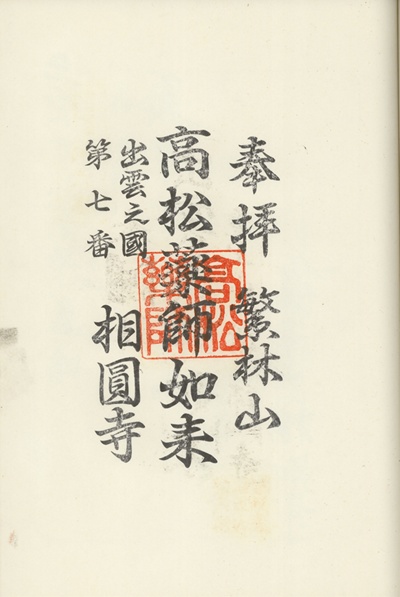 奉拝 繁林山
高松藥師如来
出雲之國
第七番
相圓寺
高松
藥師